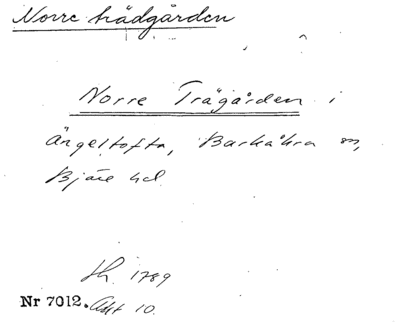 Norre trädgården
Norre Trägården i
Ängeltofta, Barkåkra sn,
Bjäre hd
Sk. 1789
Nr 7012. Akt 10.